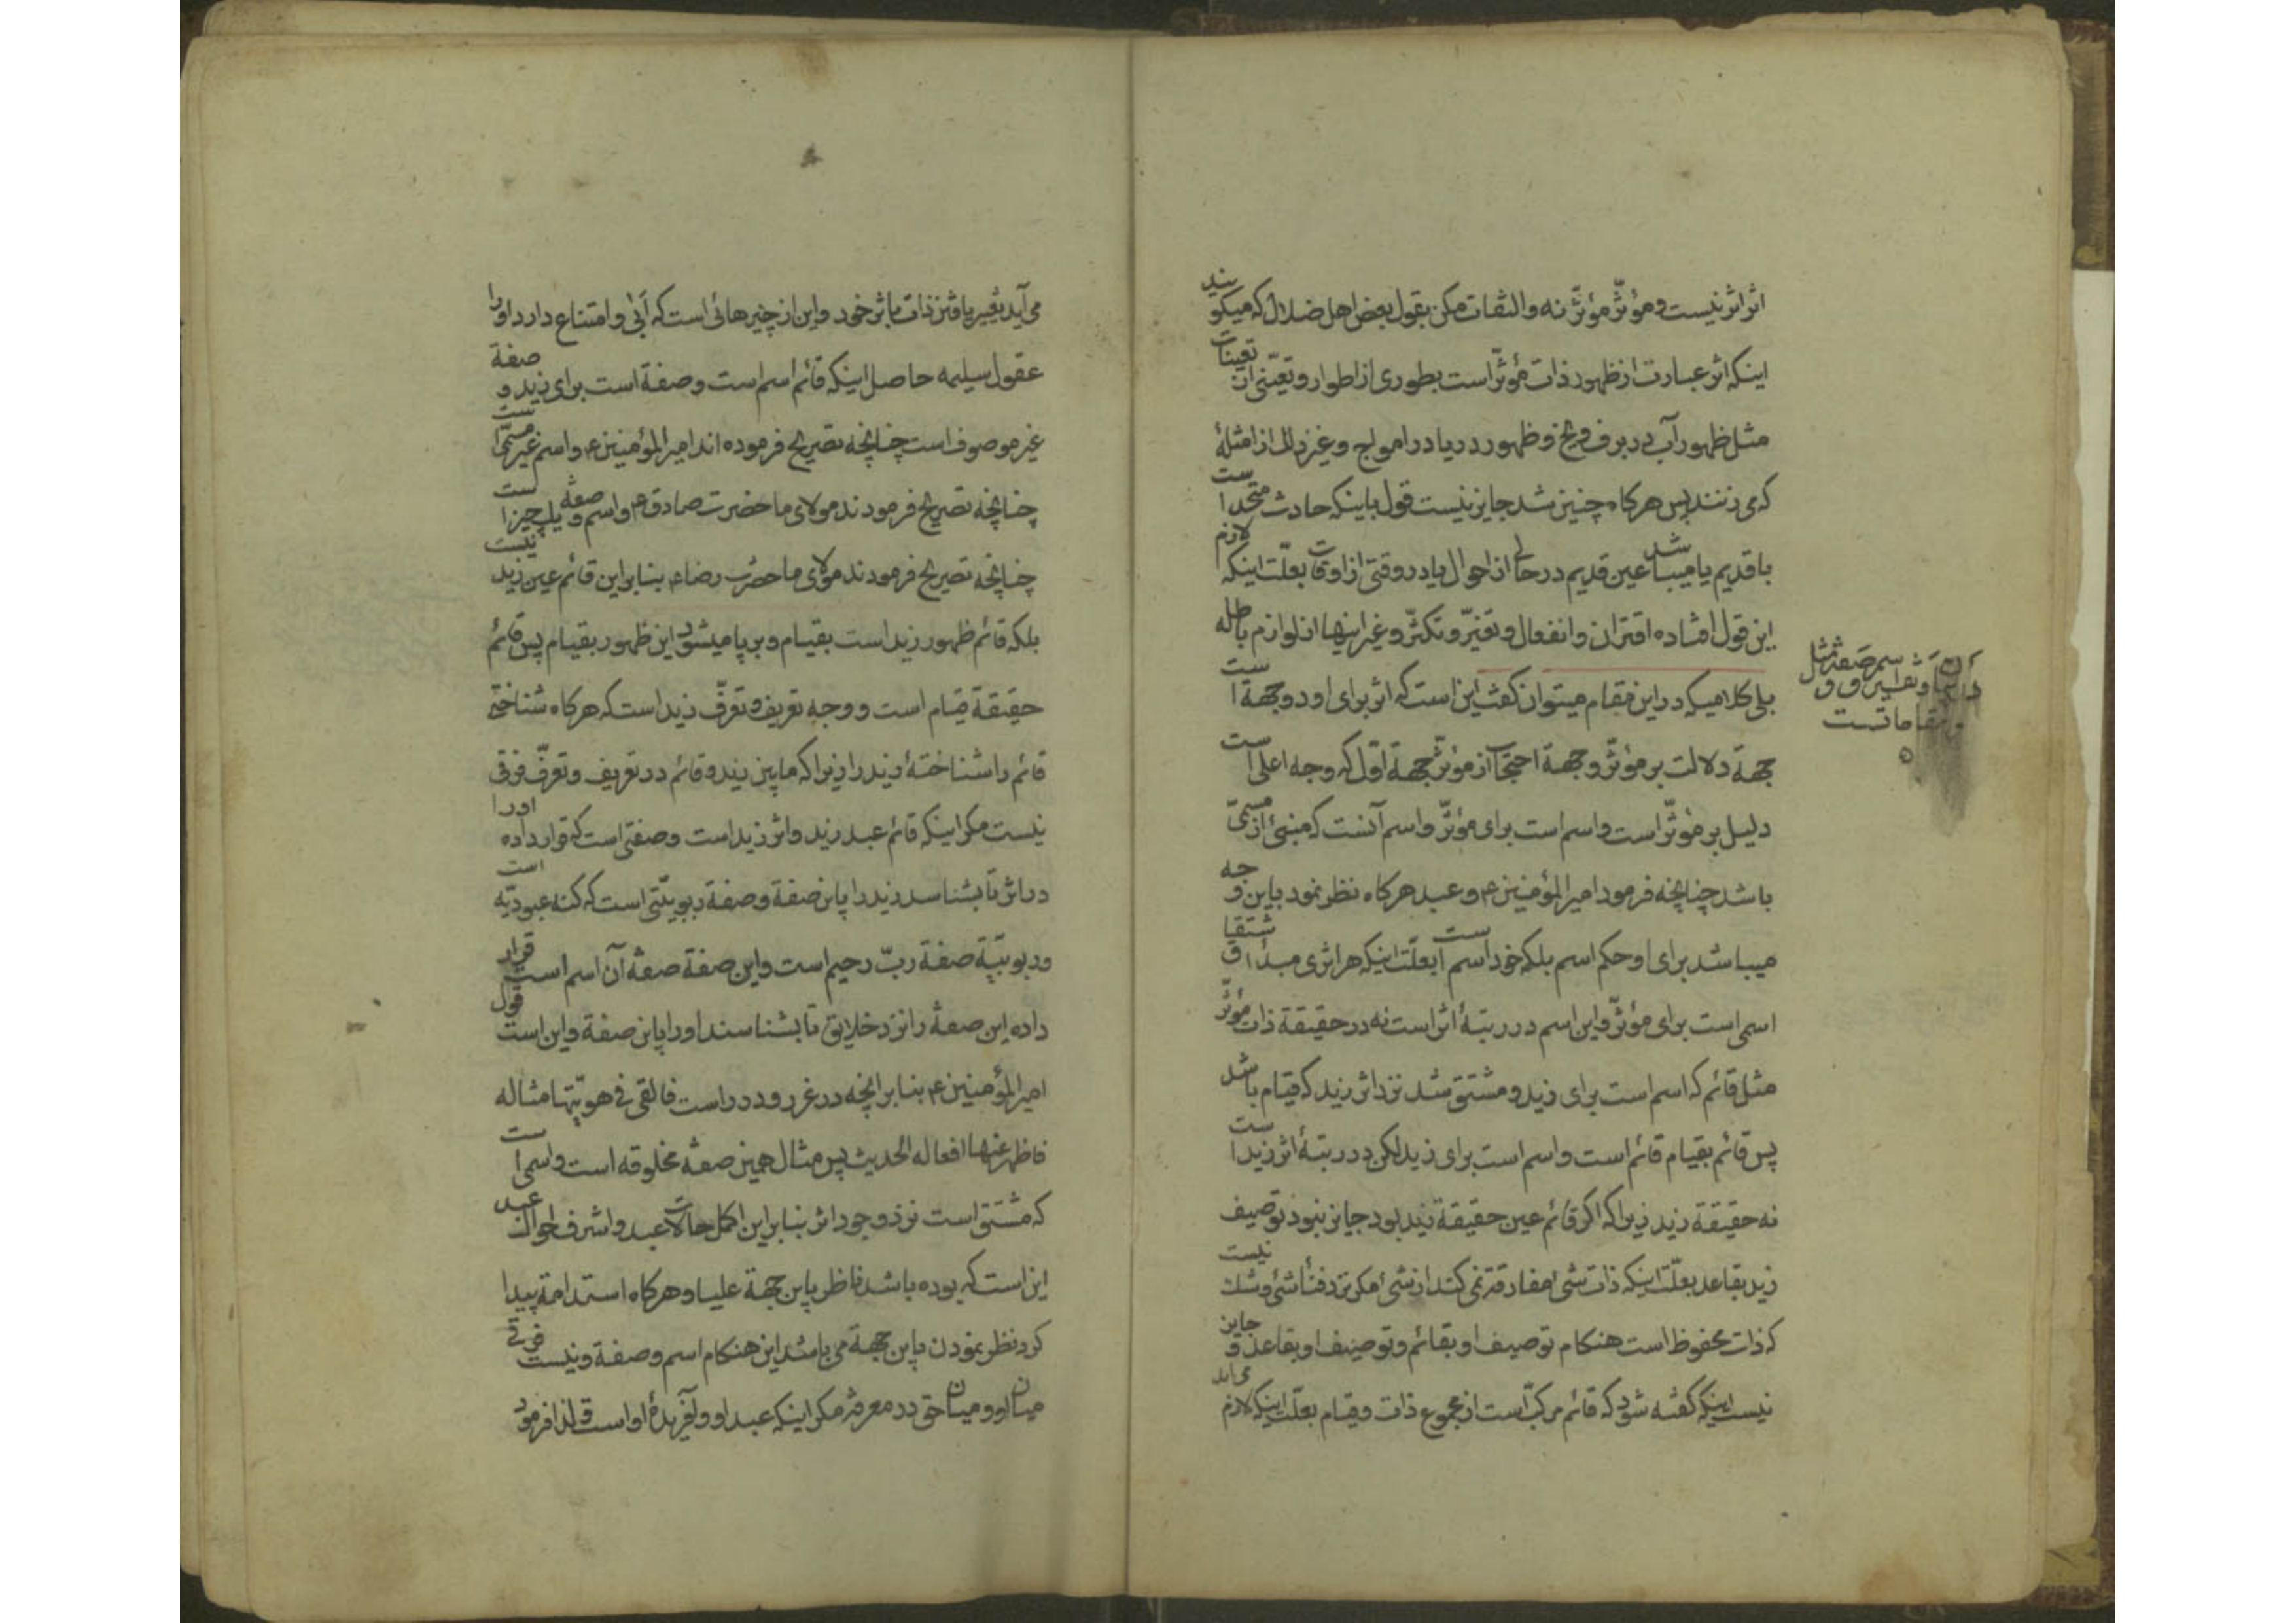 اثر اثر نیست و مؤثّر مؤثّر نه و التفات مکن بقول بعض اهل ضلال که میگویند
اینکه اثر عبارت از ظهور ذات مؤثّر است بطوری از اطوار و تعیّنی از تعینات
مثل ظهور آب در برف و یخ و ظهور دریا در امواج و غیر ذلک از امثلهٔ
که می زنند پس هرکاه چنین شد جایز نیست قول باینکه حادث متحد است
با قدیم یا میباشد عین قدیم در حالی از احوال یا در وقتی از اوقات بعلّت اینکه لازم
این قول افتاده اقتران و انفعال و تغیّر و تکثّر و غیر اینها از لوازم باطله
بلی کلامیکه در این مقام میتوان کفت این است که اثر برای او دو جهة است
جهة دلالت بر مؤثّر و جهة احتجاب از مؤثّر جهة اوّل که وجه اعلی است
دلیل بر مؤثّر است و اسم است برای مؤثّر و اسم آنست که منبئ از مسمّی
باشد چنانچه فرمود امیرالمؤمنین ع و عبد هرکاه نظر نمود باین وجه
میباشد برای او حکم اسم بلکه خود اسم است بعلّت اینکه هر اثری مبدأ اشتقاق
اسمی است برای مؤثّر و این اسم در رتبهٔ اثر است نه در حقیقة ذات مؤثّر
مثل قائم که اسم است برای زید و مشتق شد نزد اثر زید که قیام باشد
پس قائم بقیام قائم است و اسم است برای زید لکن در رتبهٔ اثر زید است
نه حقیقة زید زیرا که اکر قائم عین حقیقة زید بود جایز نبود توصیف
زید بقاعد بعلّت اینکه ذات شی مفارقة نمی کند از شی مکر نزد فنأ شی و شک نیست
که ذات محفوظ است هنکام توصیف او بقائم و توصیف او بقاعد و جایز
نیست اینکه کفته شود که قائم مرکّب است از مجموع ذات و قیام بعلّت اینکه لازم می اید
اسم صفة مثل
و
مقاماتست
می آید تغییر یافتن ذات باثر خود و این از چیزهائی است که أبی و امتناع دارد او را
عقول سلیمه حاصل اینکه قائم اسم است و صفة است برای زید و صفة
غیر موصوف است چنانچه تصریح فرموده اند امیرالمؤمنین ع و اسم غیر مسمّی است
چنانچه تصریح فرمودند مولای ما حضرت صادق ع و اسم و صفة یک چیز است
چنانچه تصریح فرمودند مولای ما حضرت رضا ع بنابر این قائم عین زید نیست
بلکه قائم ظهور زید است بقیام و برپا میشود این ظهور بقیام پس قائم
حقیقة قیام است و وجه تعریف و تعرّف زید است که هرکاه شناختی
قائم را شناختهٔ زید را زیرا که مابین زید و قائم در تعریف و تعرّف فرقی
نیست مکر اینکه قائم عبد زید و اثر زید است و صفتی است که قرار داده او را
در اثر تا بشناسد زید را باین صفة و صفة ربوبیّتی است که کنه عبودیّه است
و ربوبیّة صفة ربّ رحیم است و این صفة صفهٔ آن اسم است قرار
داده این صفة را نزد خلایق تا بشناسند او را باین صفة و این است قول
امیرالمؤمنین ع بنابر انچه در غرر و درر است فالقی فی هویّتها مثاله
فاظهر عنها افعاله الحدیث پس مثال همین صفة مخلوقه است و اسمی است
که مشتق است نزد وجود اثر بنابر این اکمل حالات عبد و اشرف احوال عبد
این است که بوده باشد ناظر باین جهة علیا و هرکاه استدامة پیدا
کرد نظر نمودن باین جهة می باشد این هنکام اسم و صفة و نیست فرقی
میان او و میان حق در معرفة مکر اینکه عبد او و آفریدهٔ او است و لذا فرمود